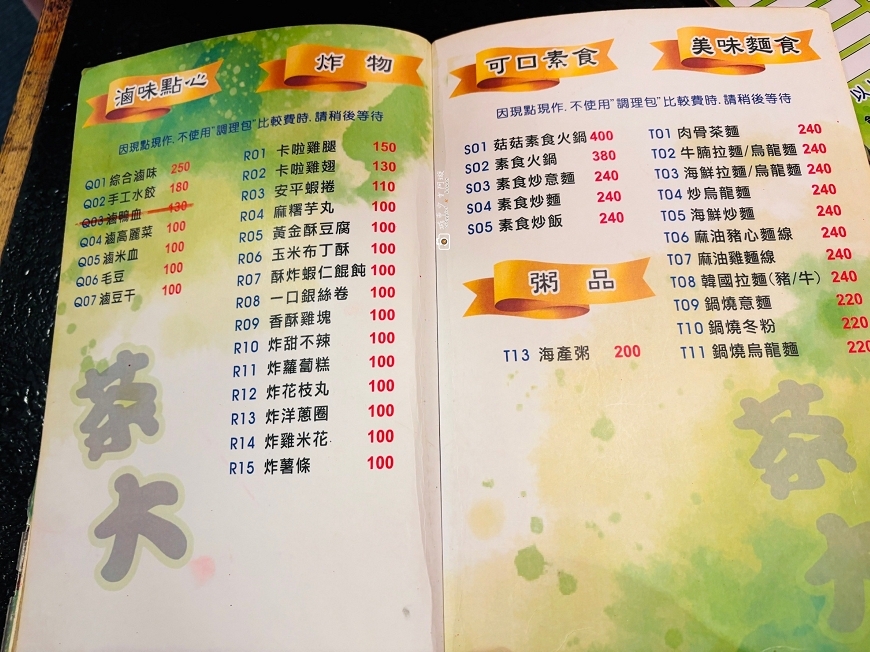 滷味點心
炸 物
因現點現作,不使用"調理包"比較費時,請稍後等待
Q01 綜合滷味 250
Q02 手工水餃 180
Q03 滷鴨血 130
Q04 滷高麗菜 100
Q05 滷米血 100
Q06 毛豆 100
Q07 滷豆干 100
R01 卡啦雞腿 150
R02 卡啦雞翅 130
R03 安平蝦捲 110
R04 麻糬芋丸 100
R05 黃金酥豆腐 100
R06 玉米布丁酥 100
R07 酥炸蝦仁餛飩 100
R08 一口銀絲卷 100
R09 香酥雞塊 100
R10 炸甜不辣 100
R11 炸蘿蔔糕 100
R12 炸花枝丸 100
R13 炸洋蔥圈 100
R14 炸雞米花 100
R15 炸薯條 100
茶
大
可口素食
美味麵食
因現點現作,不使用"調理包"比較費時,請稍後等待
S01 菇菇素食火鍋 400
S02 素食火鍋 380
S03 素食炒意麵 240
S04 素食炒麵 240
S05 素食炒飯 240
粥 品
T13 海產粥 200
T01 肉骨茶麵 240
T02 牛腩拉麵/烏龍麵 240
T03 海鮮拉麵/烏龍麵 240
T04 炒烏龍麵 240
T05 海鮮炒麵 240
T06 麻油豬心麵線 240
T07 麻油雞麵線 240
T08 韓國拉麵(豬/牛) 240
T09 鍋燒意麵 220
T10 鍋燒冬粉 220
T11 鍋燒烏龍麵 220
茶